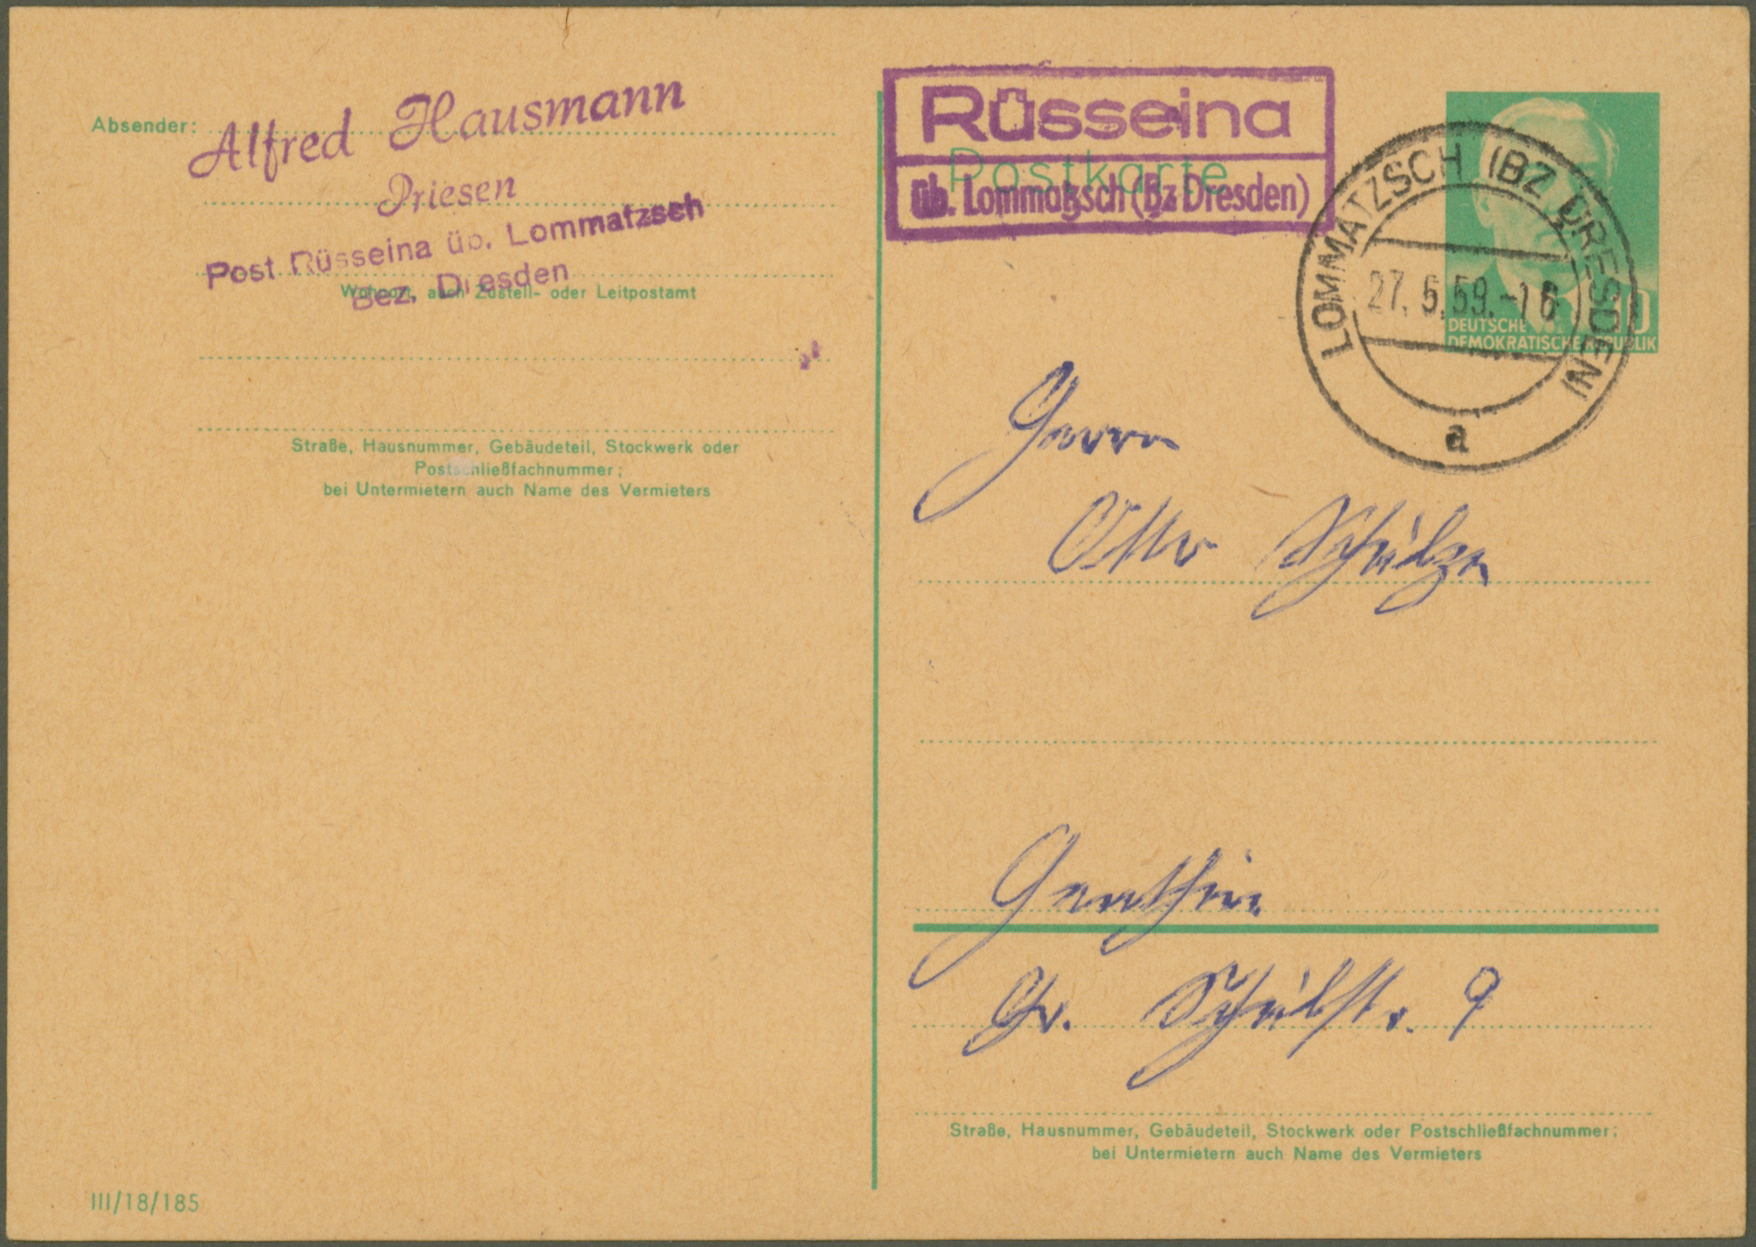 Absender:
Alfred Hausmann
Priesen
Post Rüsseina üb. Lommatzsch
Bez. Dresden
Wohnort, auch Zustell- oder Leitpostamt
Straße, Hausnummer, Gebäudeteil, Stockwerk oder
Postschließfachnummer;
bei Untermietern auch Name des Vermieters
III/18/185
Rüsseina
Postkarte
üb. Lommatzsch (Bz Dresden)
LOMMATZSCH (BZ DRESDEN)
27. 6.59.-16
a
10
DEUTSCHE
DEMOKRATISCHE REPUBLIK
Herrn
Otto Schulze
Genthin
Gr. Schulstr. 9
Straße, Hausnummer, Gebäudeteil, Stockwerk oder Postschließfachnummer;
bei Untermietern auch Name des Vermieters